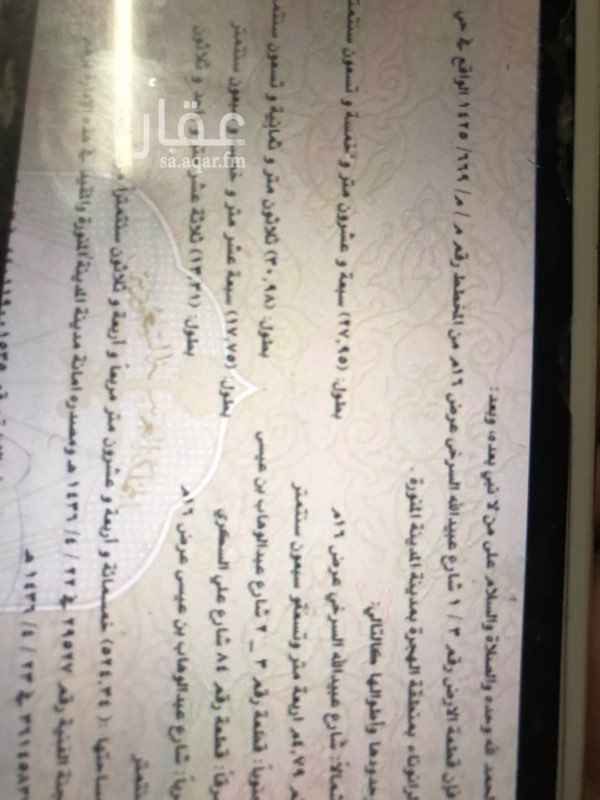 حمد لله وحده والصلاة والسلام على من لا نبي بعده، وبعد:
فإن قطعة الارض رقم ٣ / ١ شارع عبيدالله السرخي عرض ١٦م من المخطط رقم م / م / ٦٦٩ / ١٤٢٥ الواقع في حي
بمنطقة الهجرة بمدينة المدينة المنورة .
حدودها وأطوالها كالتالي:
شمالاً: شارع عبيدالله السرخي عرض ١٦م بطول: (٢٧,٩٥) سبعة و عشرون متر و خمسة و تسعون سنتمتر
٤,٧٩م اربعة متر وتسعةو سبعون سنتمتر
جنوباً: قطعة رقم ٣ _ ٢ شارع عبدالوهاب بن عيسى بطول: (٣٠,٩٨) ثلاثون متر و ثمانية و تسعون سنتمتر
شرقاً: قطعة رقم ٨٤ شارع علي السكري بطول: (١٧,٧٥) سبعة عشر متر و خمسة و سبعون سنتمتر
غرباً: شارع عبدالوهاب بن عيسى عرض ١٦م بطول: (١٣,٣١) ثلاثة عشر متر و واحد و ثلاثون
سنتمتر
مساحتها : (٥٢٤,٣٤) خمسمائة و أربعة و عشرون متر مربعاً و أربعة و ثلاثون سنتمتراً
الفنية رقم ٢٩٥٢٧ في ٢٢ / ٤ / ١٤٣٦ هـ ومصدره امانة مدينة المدينة المنورة والمقيد في هذه الإدارة برقم
في ٢٣ / ٤ / ١٤٣٦ هـ
عقار
sa.aqar.fm